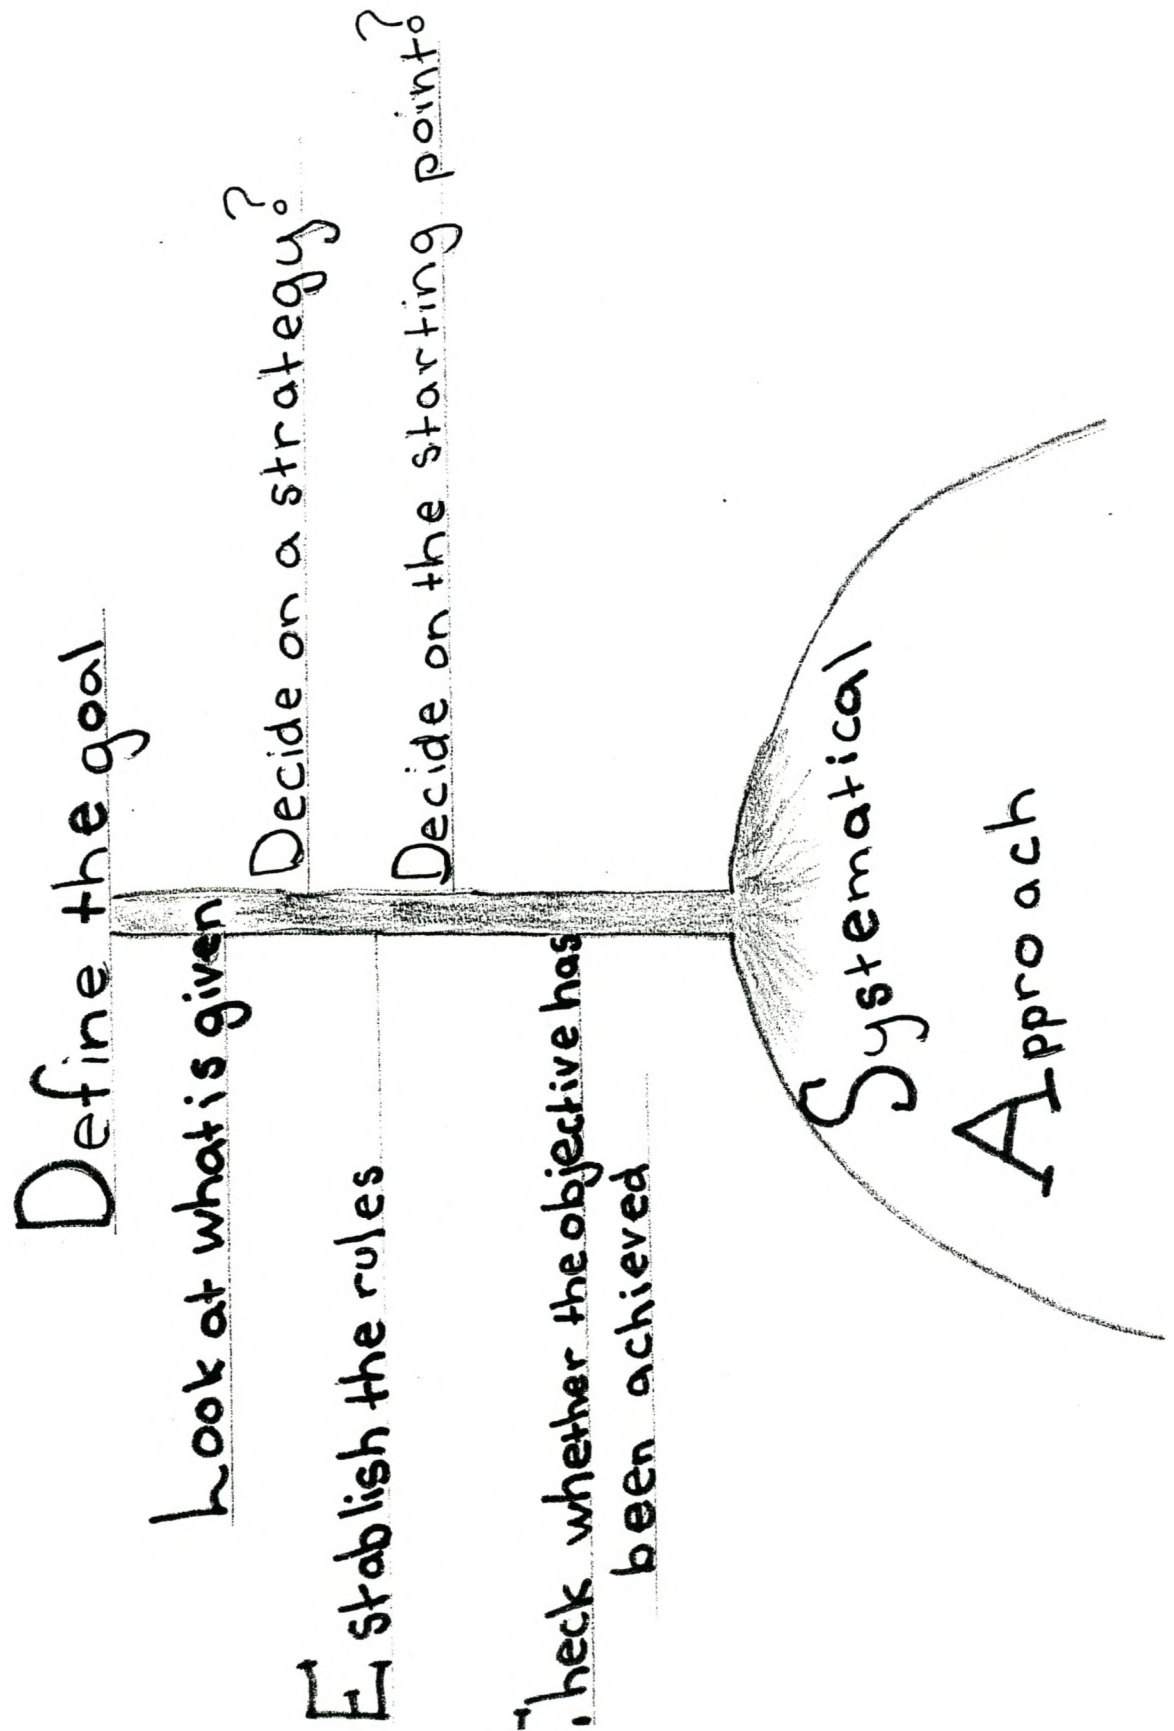 Define the goal
Look at what is given
Decide on a strategy?
Establish the rules
Decide on the starting point?
Check whether the objective has
been achieved
Systematical
Approach